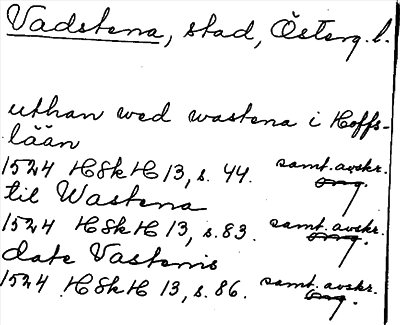 Vadstena, stad, Österg. l.
uthan wed wastena i Hoffs-
lään
1524 HSkH 13, s. 44. samt. avskr.
til Wastena
1524 HSkH 13, s. 83. samt. avskr.
date Vastenis
1524 HSkH 13, s. 86. samt. avskr.